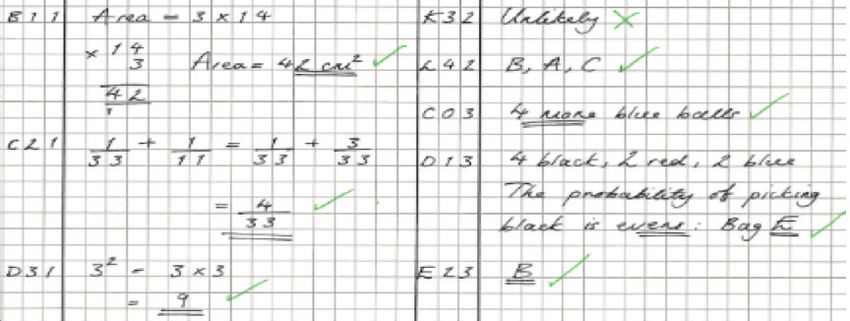 B11 Area = 3 × 14
× 14
3
42
1
Area = 42 cm²
C21 1/33 + 1/11 = 1/33 + 3/33
= 4/33
D31 3² = 3 × 3
= 9
K32 Unlikely
L42 B, A, C
C03 4 more blue balls
D13 4 black, 2 red, 2 blue
The probability of picking
black is evens: Bag E
E23 B